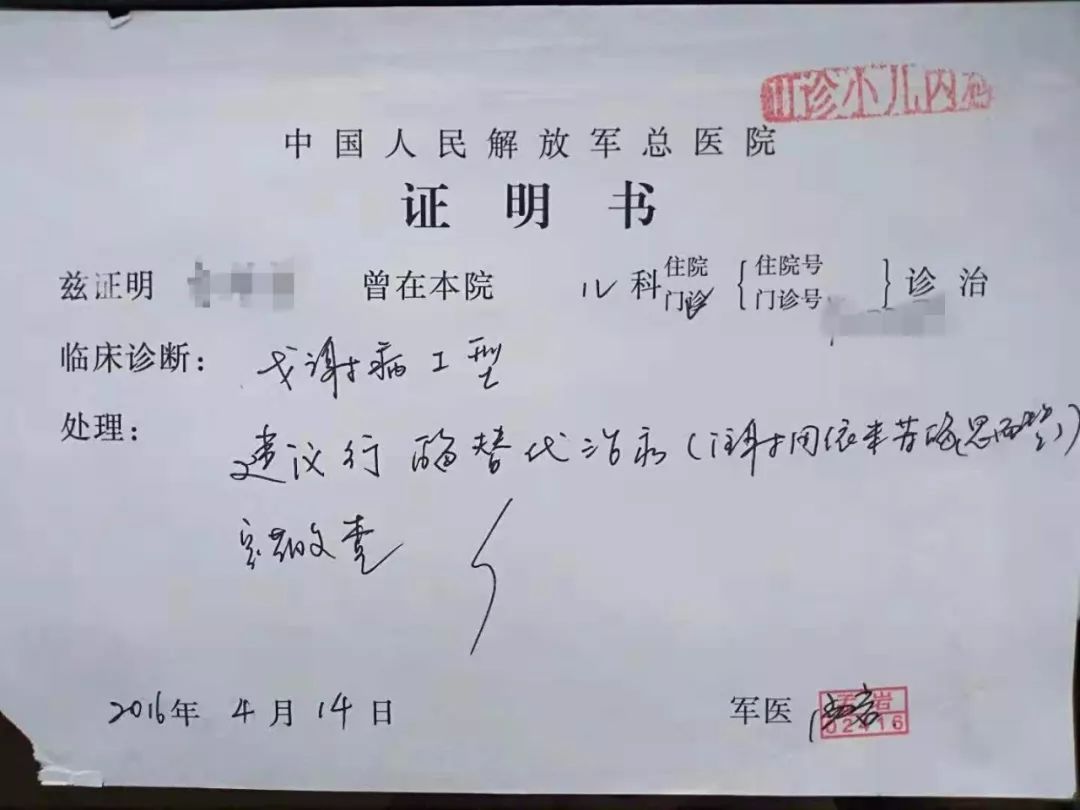 门诊小儿内科
中国人民解放军总医院
证明书
兹证明 曾在本院 儿科 住院 门诊 { 住院号 门诊号 } 诊治
临床诊断: 戈谢病I型
处理: 建议行酶替代治疗(注射用依米苷酶 )
定期复查
2016年4月14日 军医 孟岩
02416